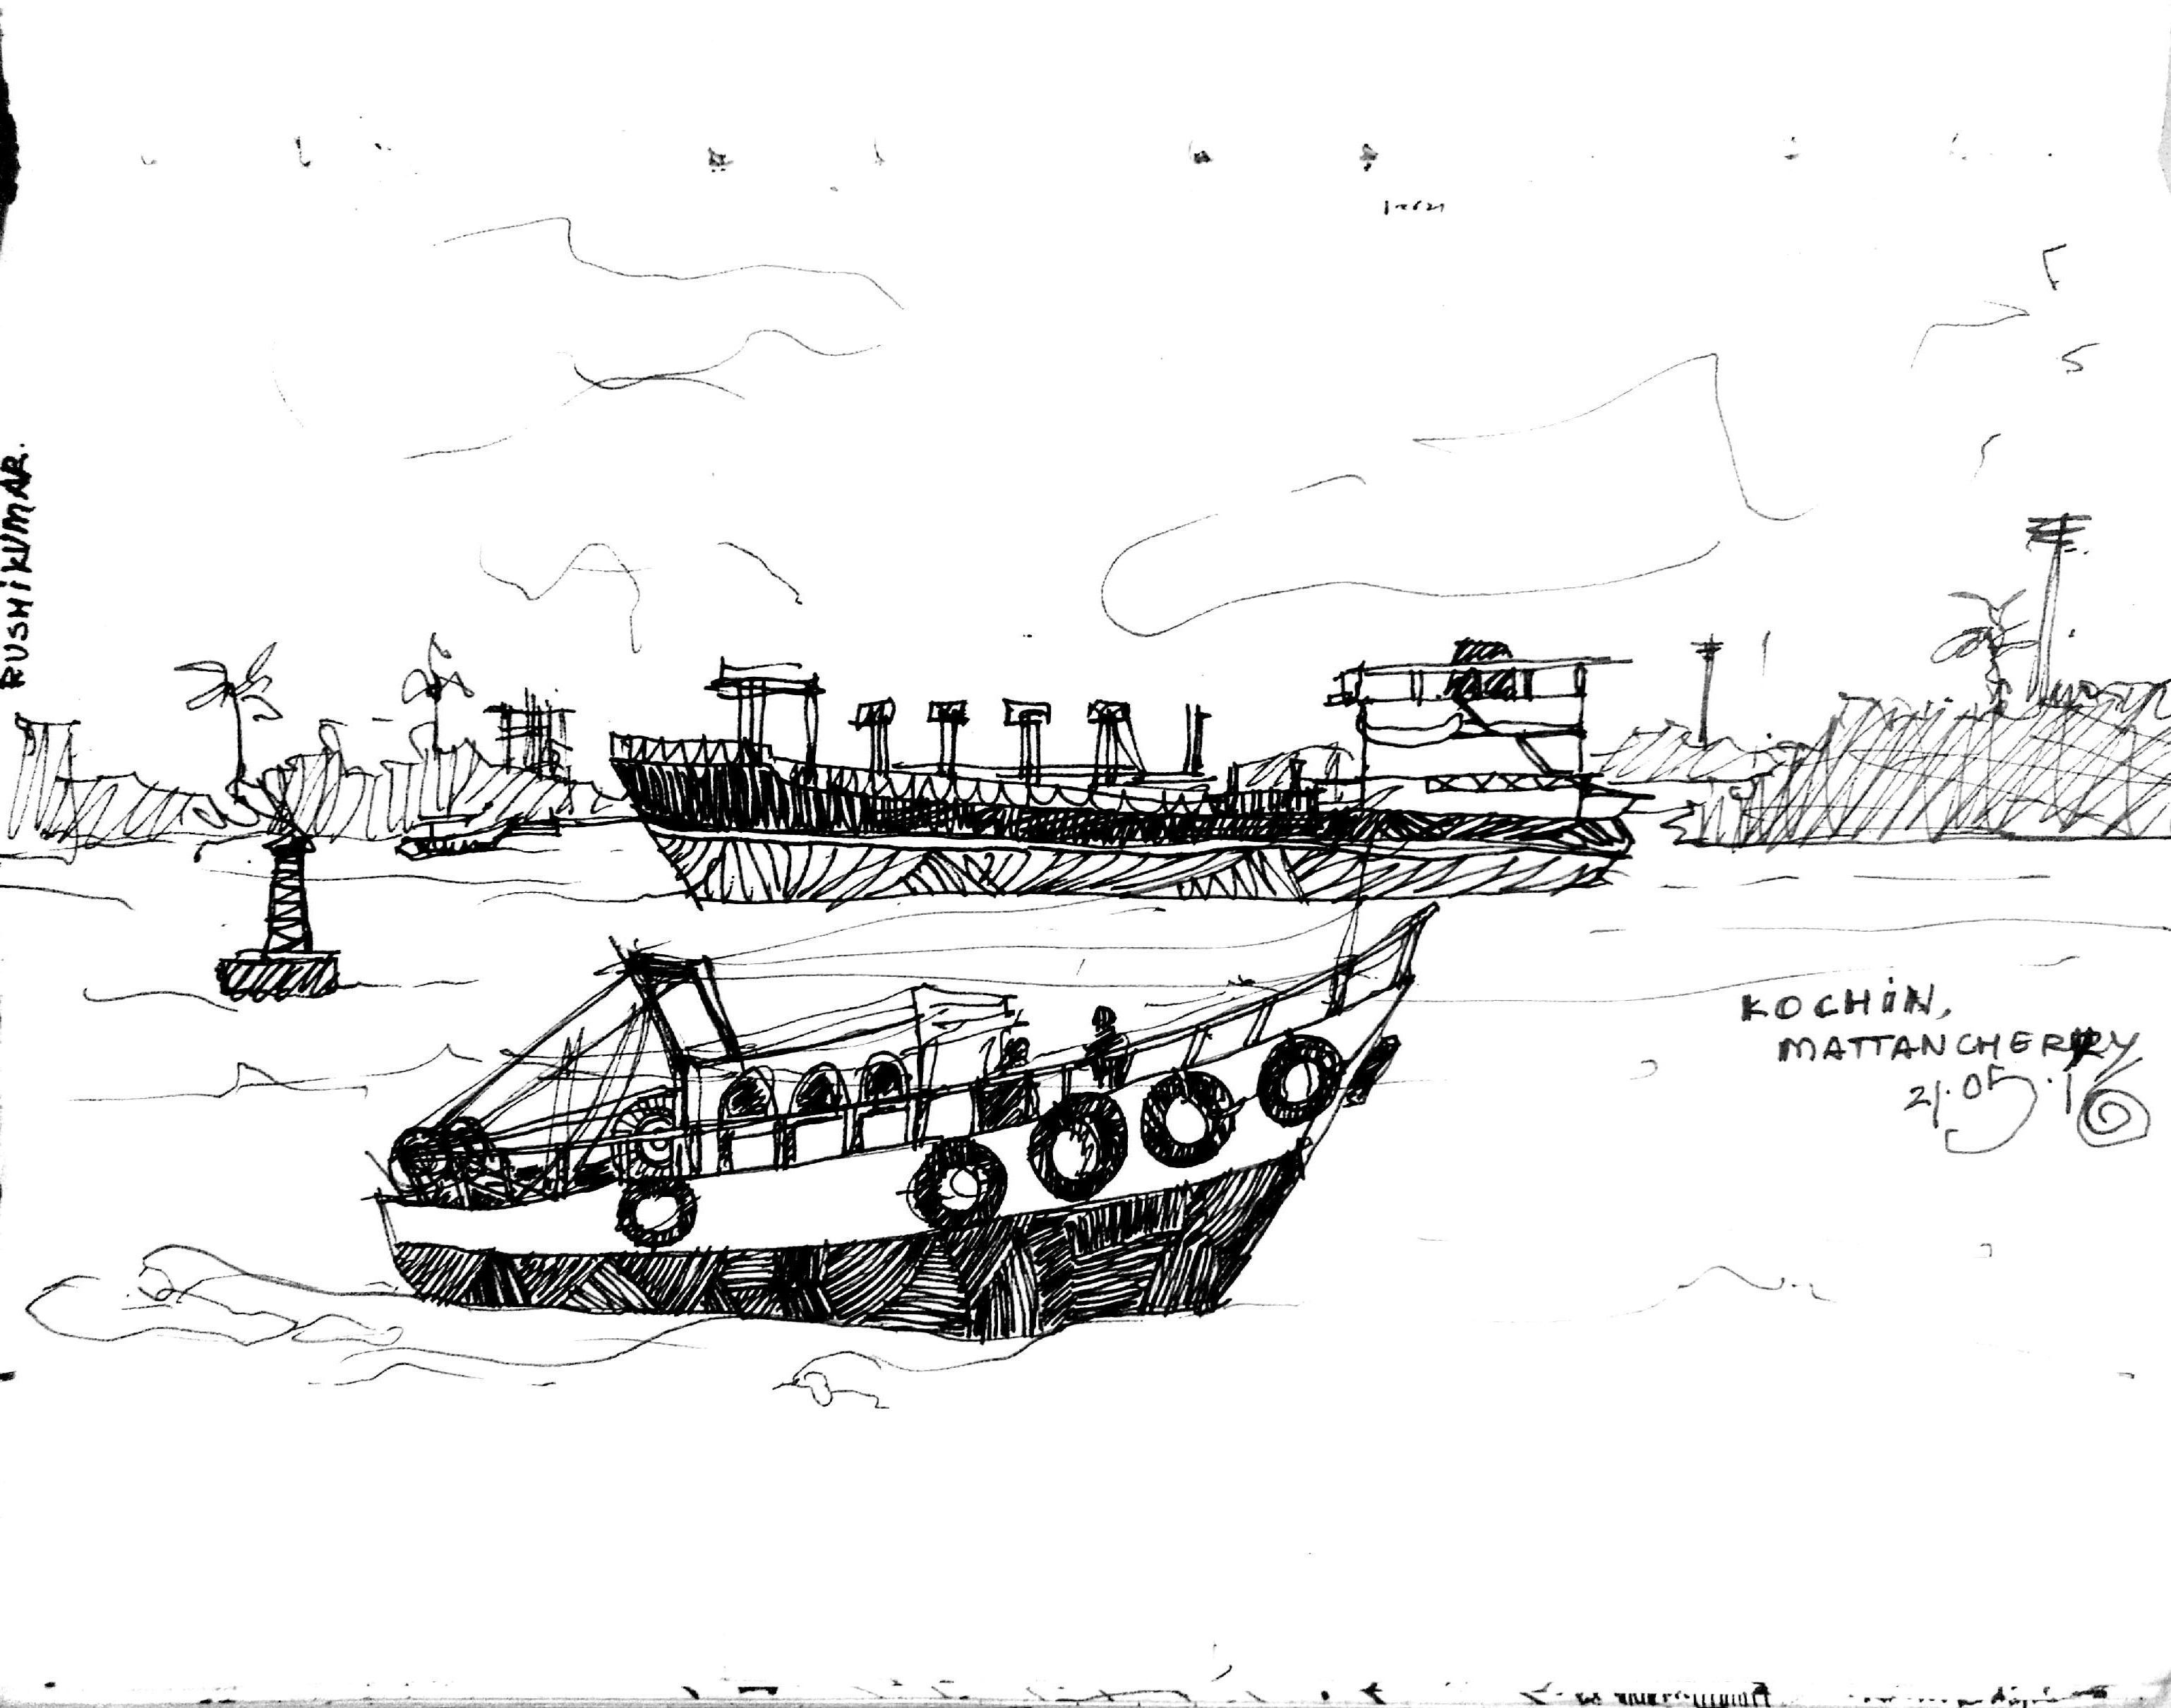 RUSHIKUMAR.
KOCHIN,
MATTANCHERRY
21.05.16